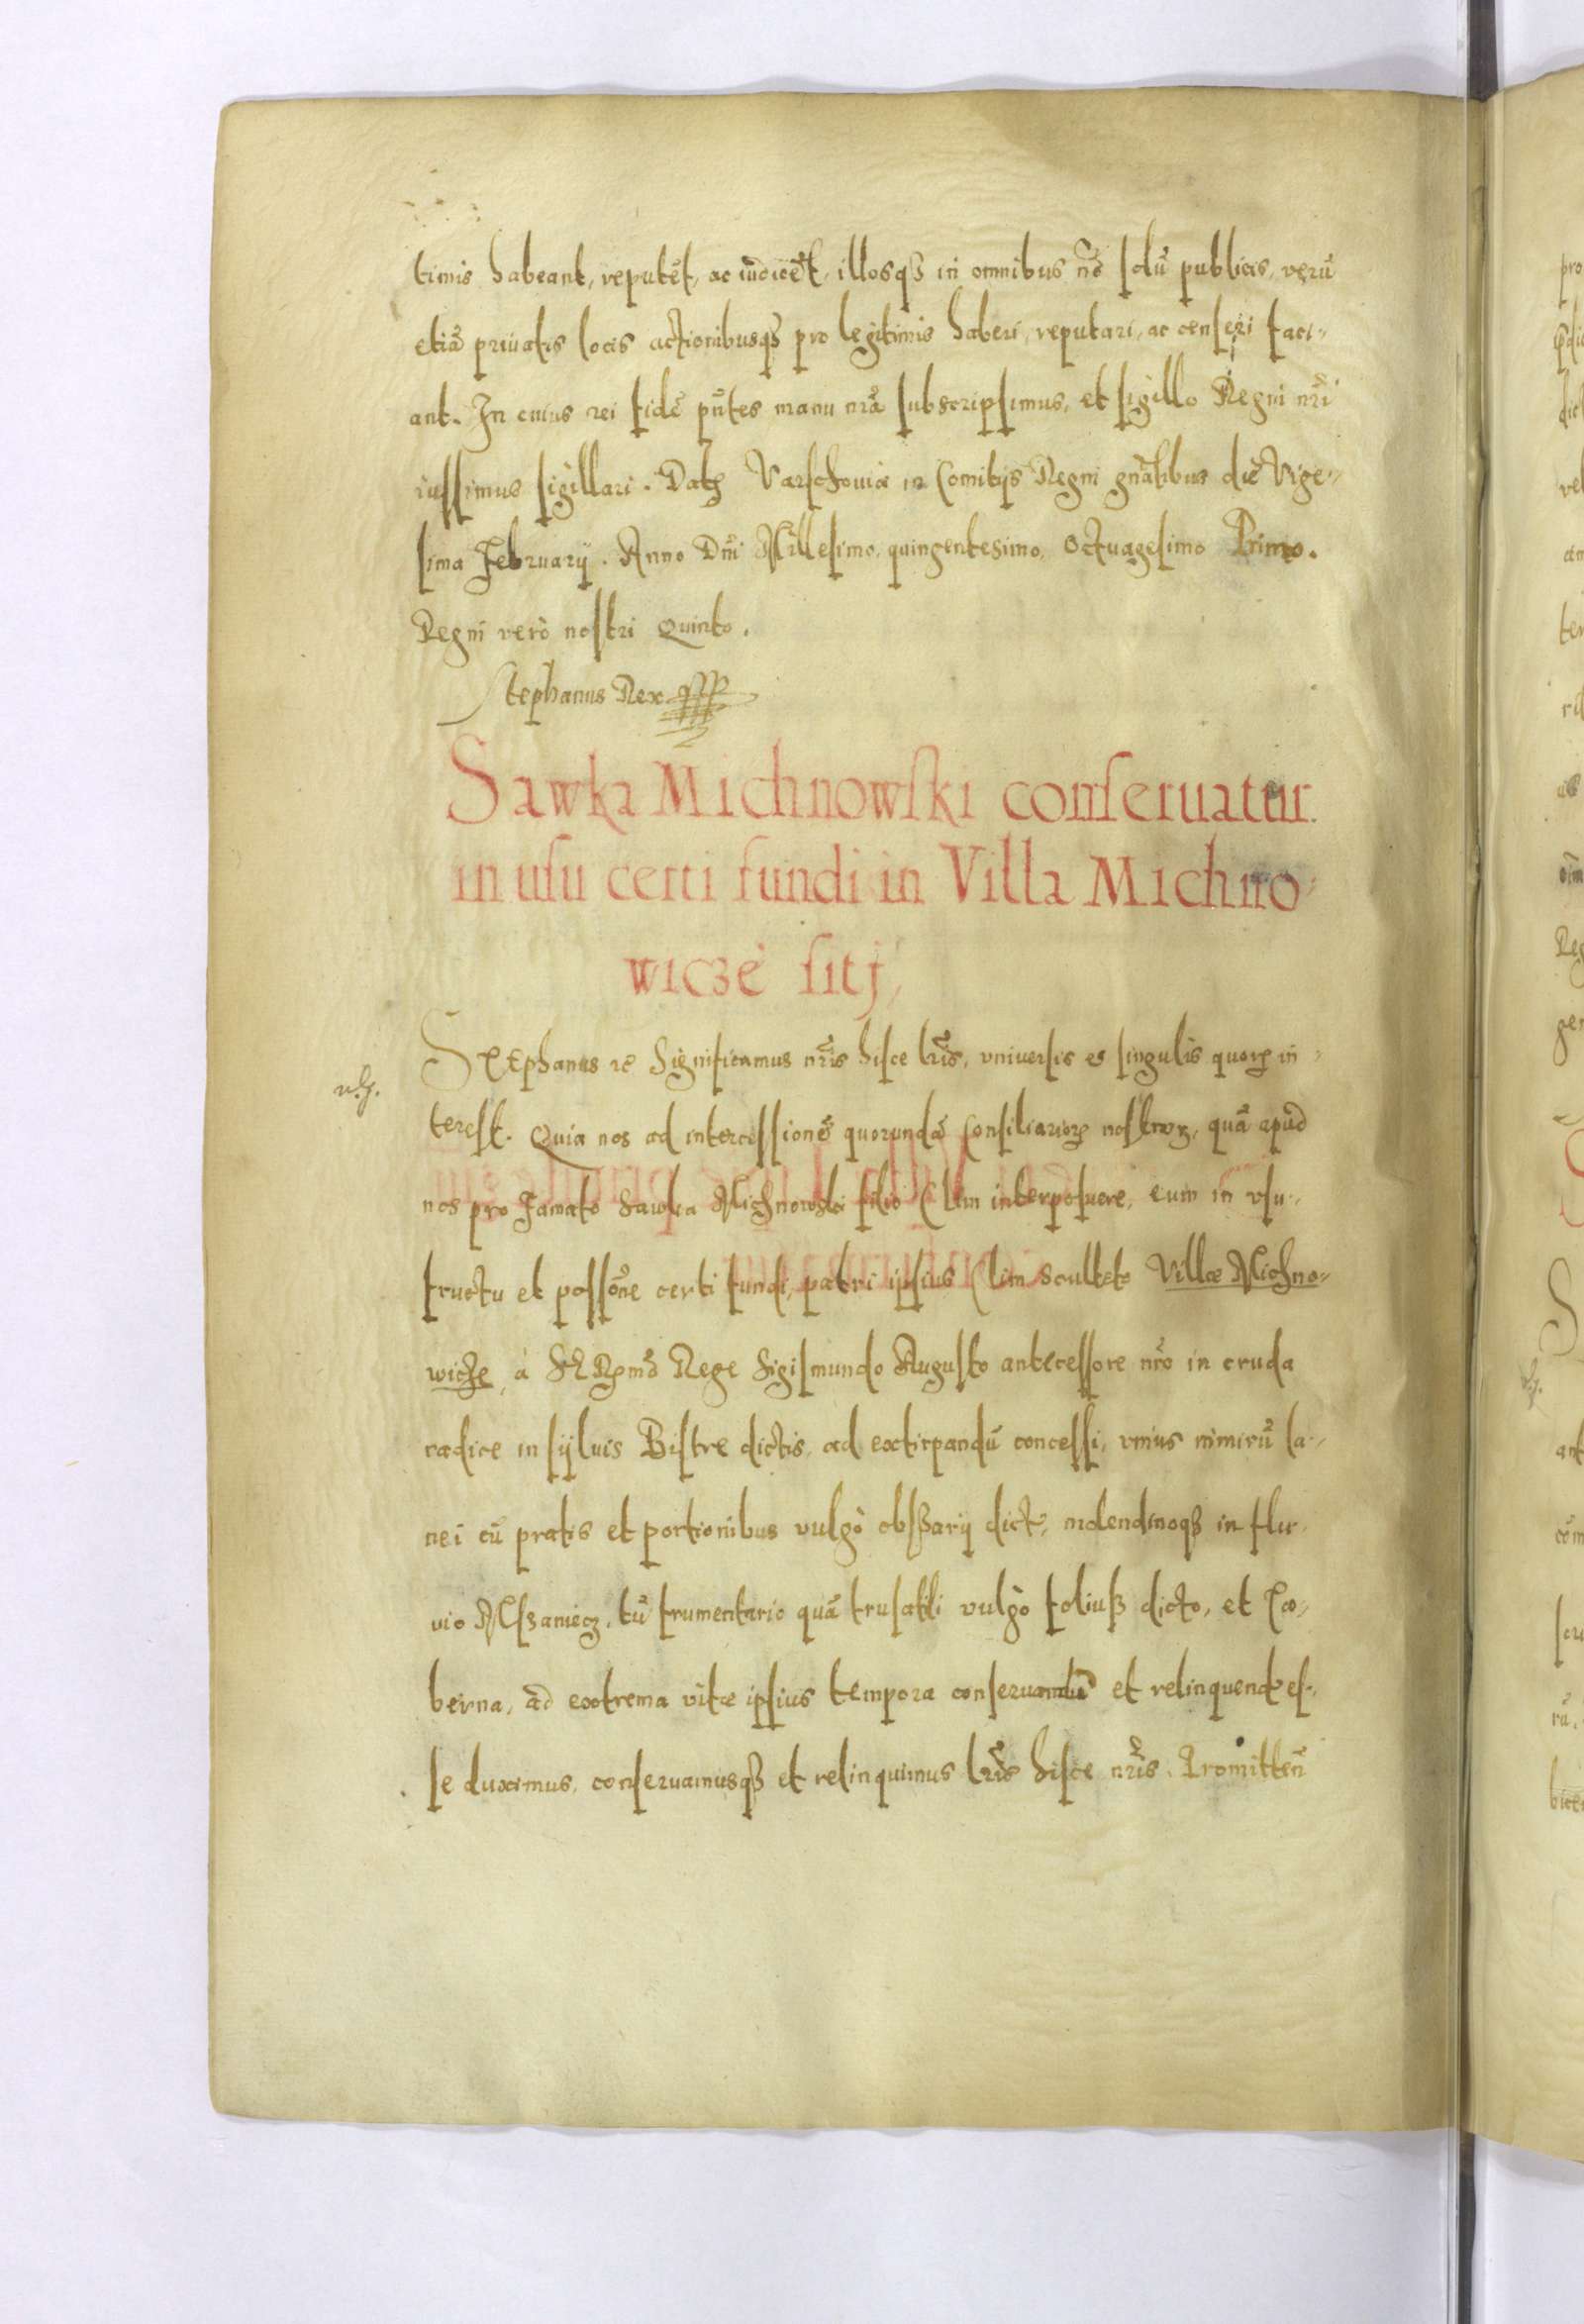 timis habeant, reputēt, ac iudicēt, illosqꝫ in omnibus nō solū publicis, verū
etiā priuatis locis actionibusqꝫ pro legitimis haberi, reputari, ac censeri faci-
ant. In cuius rei fidē pn̄tes manu nrā subscripsimus, et sigillo Regni nrī
iussimus sigillari. Datꝫ Varschouiæ in Comitijs Regni gnālibus diē Vige-
sima February. Anno Dnī Millesimo, quingentesimo, Octuagesimo Primo.
Regni verò nostri Quinto.
Stephanus Rex
Sawka Michnowski conseruatur
in usu certi fundi in Villa Michno-
wiczè sitj,
Stephanus ꝛc Significamus nrīs hisce lrīs, vniuersis et singulis quorꝫ in-
terest. Quia nos ad intercessionē quorundā Consiliariorꝫ nostrorꝫ, quā apud
nos pro famato Sawka Michnowski filio Clim interposuere, eum in vsu-
fructu et possōne certi fundi, patri ipsius Clim sculteto Villæ Michno-
wicze, à Rege Sigismundo Augusto antecessore nrō in cruda
radice in syluis Bistre dictis, ad extirpandū concessi, vnius nimirū la-
nei cū pratis et portionibus vulgò obszary dict, molendinoqꝫ in flu-
vio Mszaniecz, tū frumentario quā trusatili vulgò foliusz dicto, et ta-
berna, ad extrema vitæ ipsius tempora conseruandū et relinquend es-
se duximus, conseruamusqꝫ et relinquimus lrīs hisce nrīs. Promitten̄